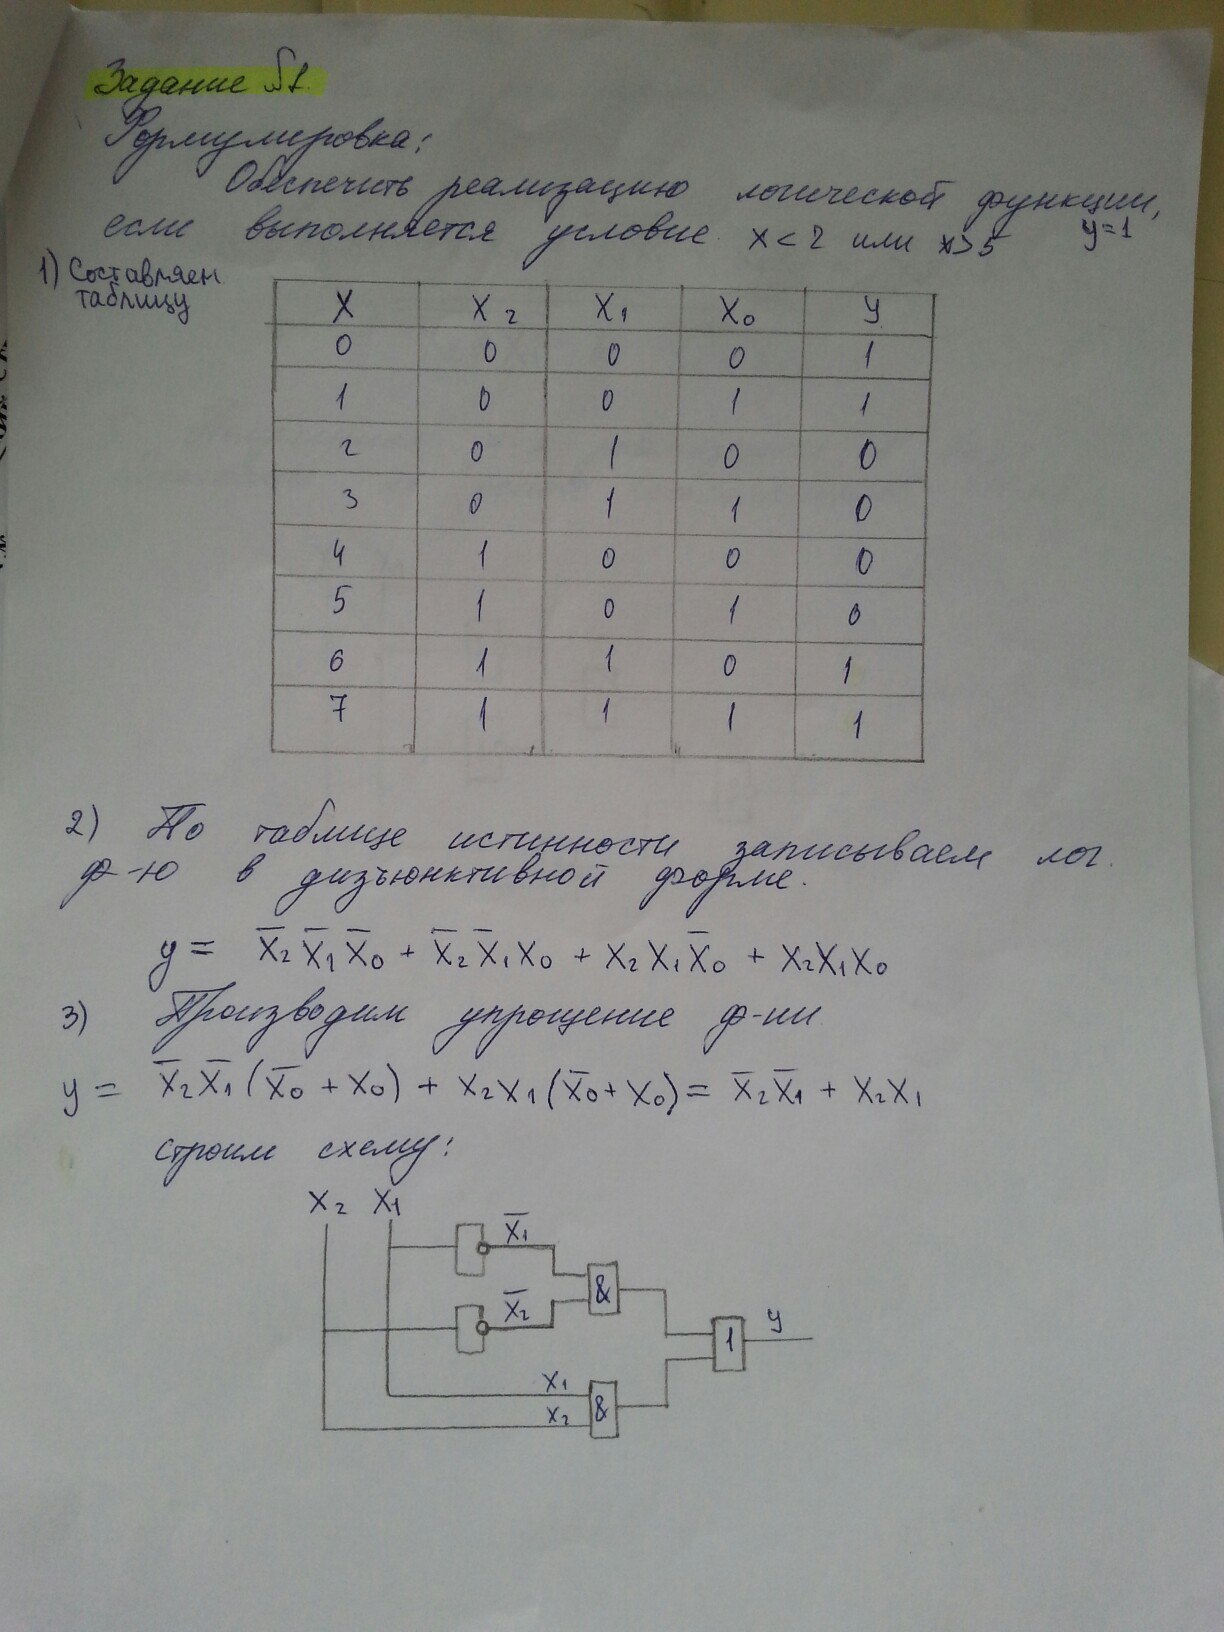 Задание №1.
Формулировка:
Обеспечить реализацию логической функции,
если выполняется условие x<2 или x>5 y=1
1) Составляем
таблицу
X X₂ X₁ X₀ y
0 0 0 0 1
1 0 0 1 1
2 0 1 0 0
3 0 1 1 0
4 1 0 0 0
5 1 0 1 0
6 1 1 0 1
7 1 1 1 1
2) По таблице истинности записываем лог.
ф-ю в дизъюнктивной форме.
y = X̅₂ X̅₁ X̅₀ + X̅₂ X̅₁ X₀ + X₂ X₁ X̅₀ + X₂X₁X₀
3) Производим упрощение ф-ии
y = X̅₂X̅₁(X̅₀ + X₀) + X₂X₁(X̅₀+X₀) = X̅₂X̅₁ + X₂X₁
строим схему:
X₂ X₁
X̅₁
&
X̅₂
y
1
X₁
X₂
&